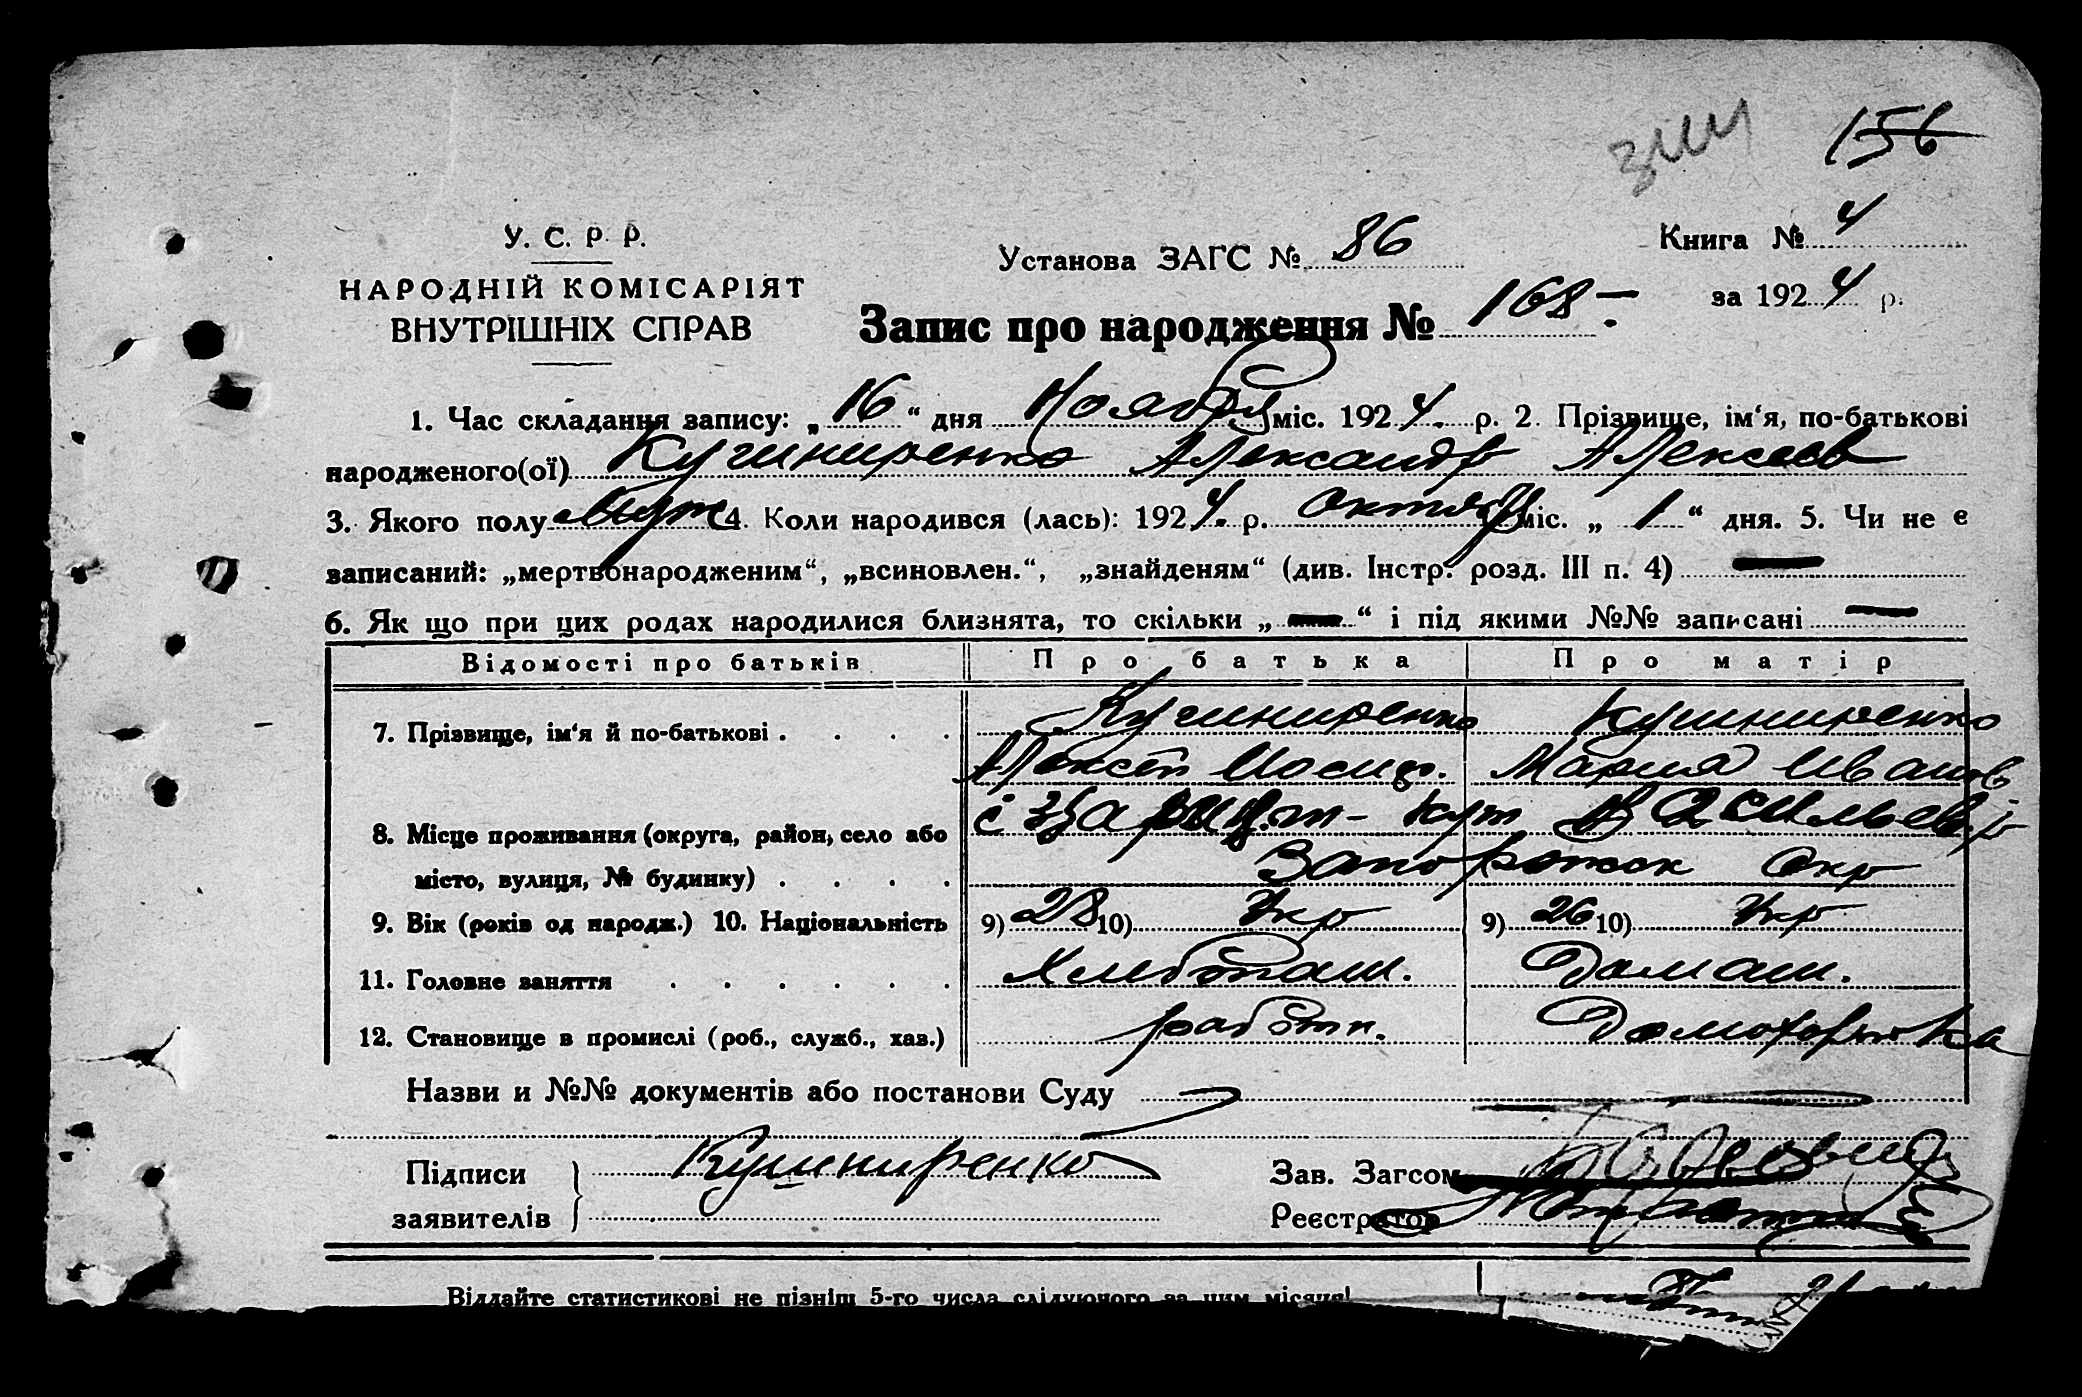 156
У. С. Р. Р.
Установа ЗАГС № 86
Книга № 4
НАРОДНІЙ КОМІСАРІЯТ
ВНУТРІШНІХ СПРАВ
за 1924 р.
Запис про народження № 168 -
1. Час складання запису: „16“ дня Ноября міс. 1924 р. 2. Прізвище, ім‘я, по-батькові
народженого(ої) Кушниренко Александр Алексеев
3. Якого полу муж 4. Коли народився (лась): 1924 р. октяб міс. „1“ дня. 5. Чи не є
записаний: „мертвонародженим“, „всиновлен.“, „знайденям“ (див. Інстр. розд. III п. 4) —
6. Як що при цих родах народилися близнята, то скільки „—“ і під якими №№ записані —
Відомості про батьків Про батька Про матір
7. Прізвище, ім‘я й по-батькові . . . . Кушниренко Кушниренко
Алексей Иосиф. Мария Иванов
8. Місце проживання (округа, район, село або
місто, вулиця, № будинку) . . . . Запорожск Окр
9. Вік (років од народж.) 10. Національність 9) 28 10) Укр 9) 26 10) Укр
11. Головне заняття . . . . . . Хлебопаш. Домаш.
12. Становище в промислі (роб., служб., хав.) работн. Домохозяйка
Назви и №№ документів або постанови Суду
Підписи
заявителів } Кушниренко
Зав. Загсом
Реєстратор
Віддайте статистикові не пізніш 5-го числа слідуючого за цим місяця!